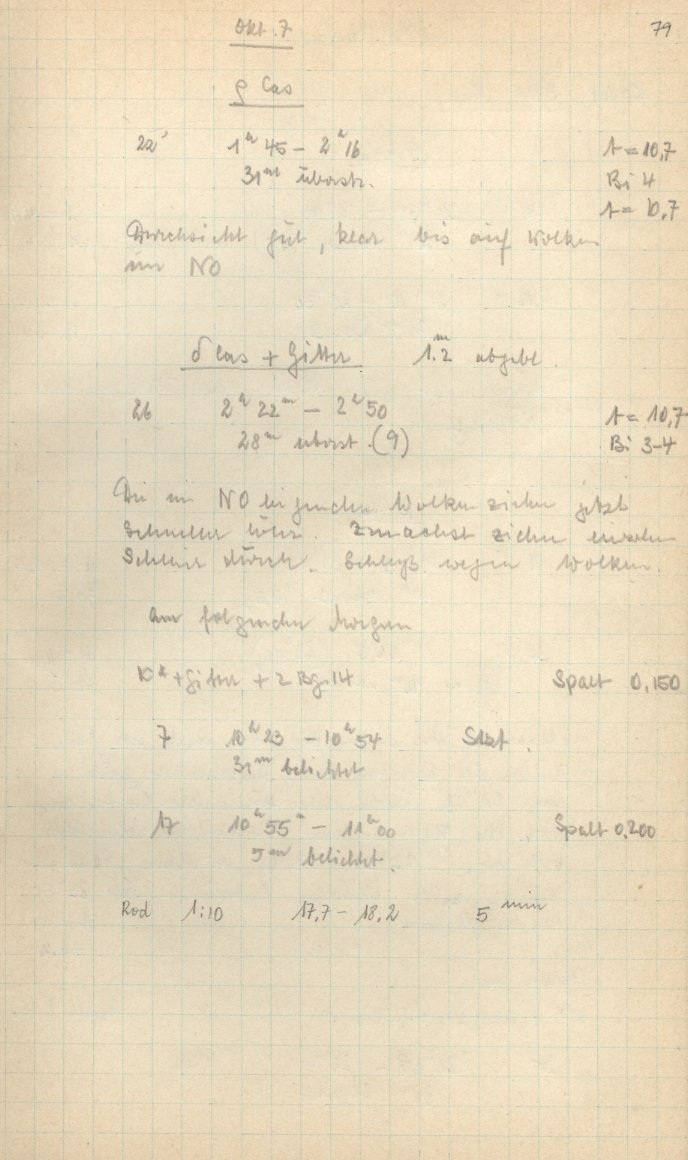 Okt. 7 79
ρ Cas
22' 1ʰ 45 – 2ʰ 16 t = 10,7
31ᵐ überstr. Bi 4
t = 10,7
Durchsicht gut, klar bis auf Wolken
im NO
δ Cas + Gitter 1ᵐ.2 abgebl.
26 2ʰ 22ᵐ – 2ʰ 50 t = 10,7
28ᵐ überst. (9) Bi 3–4
Die im NO liegenden Wolken ziehen jetzt
schneller höher. Zunächst ziehen einzelne
Schleier durch. Schluß wegen Wolken.
Am folgenden Morgen
+ Gitter + 2 Bg. 14 Spalt 0,150
7 10ʰ 23 – 10ʰ 54
31ᵐ belichtet
17 10ʰ 55ᵐ – 11ʰ 00 Spalt 0,200
5ᵐ belichtet.
Rod 1:10 17,7 – 18,2 5 min